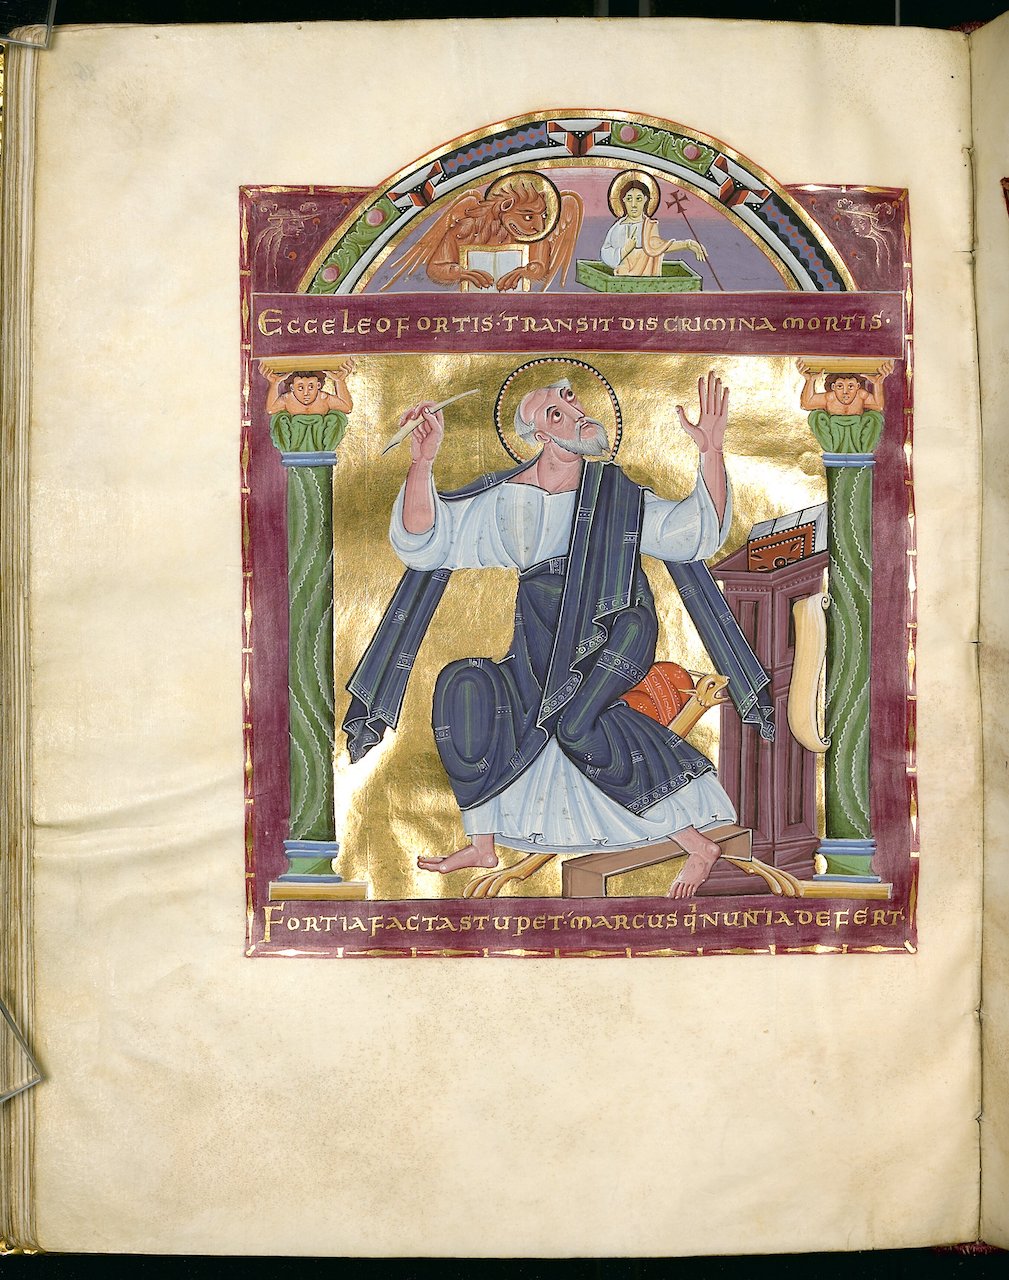 ECCE LEO FORTIS · TRANSIT DISCRIMINA MORTIS ·
FORTIA FACTA STUPET · MARCUS q̇ NUNTIA DEFERT ·